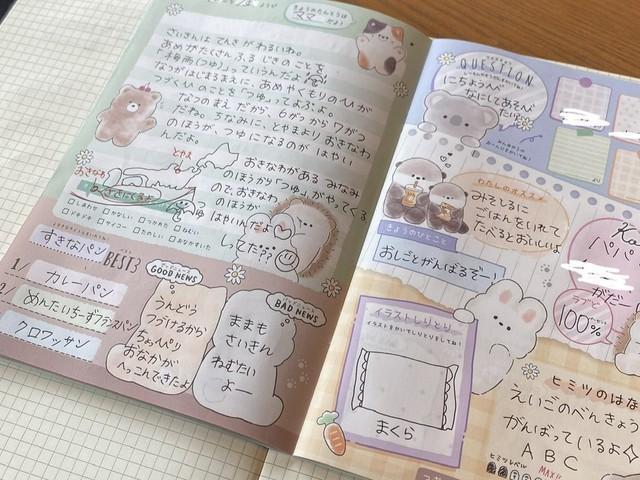 きょうのたんとうは
ママ だよ!
さいきんは てんきがわるいね。
あめがたくさんふる じきのことを
梅雨(つゆ)っていうんだよ
なつがはじまるまえに あめやくもりのひが
つづくひのことを「つゆ」ってよぶよ。
なつのまえ だから、6がつから 7がつ
だね。ちなみに、とやまより おきなわ
のほうが、つゆになるのが はやい
んだよ。
とやま
おきなわ
おきなわがある みなみ
のほうから「つゆ」がやってくる
ので、おきなわ
のほうが
はやいんだよ
しってた??
しあわせ
かなしい
つかれた
ねむい
ドキドキ
サイコー
たのしい
おなかすいた
すきなパン BEST3
1/ カレーパン
2/ めんたいちーずフランスパン
クロワッサン
GOOD NEWS
うんどう
つづけるから
ちょっぴり
おなかが
へっこんできたよ!
BAD NEWS
ままも
さいきん
ねむたい
よー
QUESTION
にちようび
なにしてあそび
たい?
わたしのオススメ
みそしるに
ごはんをいれて
たべるとおいしいよ
きょうのひとこと
おしごとがんばるぞー!
パパ
がだ
ラブ
100%
イラストしりとり
イラストをかいてしりとりをしてね!
まくら
ヒミツのはな
えいごのべんきょう
がんばっているよ
A B C
ヒミツレベル
MAX!!